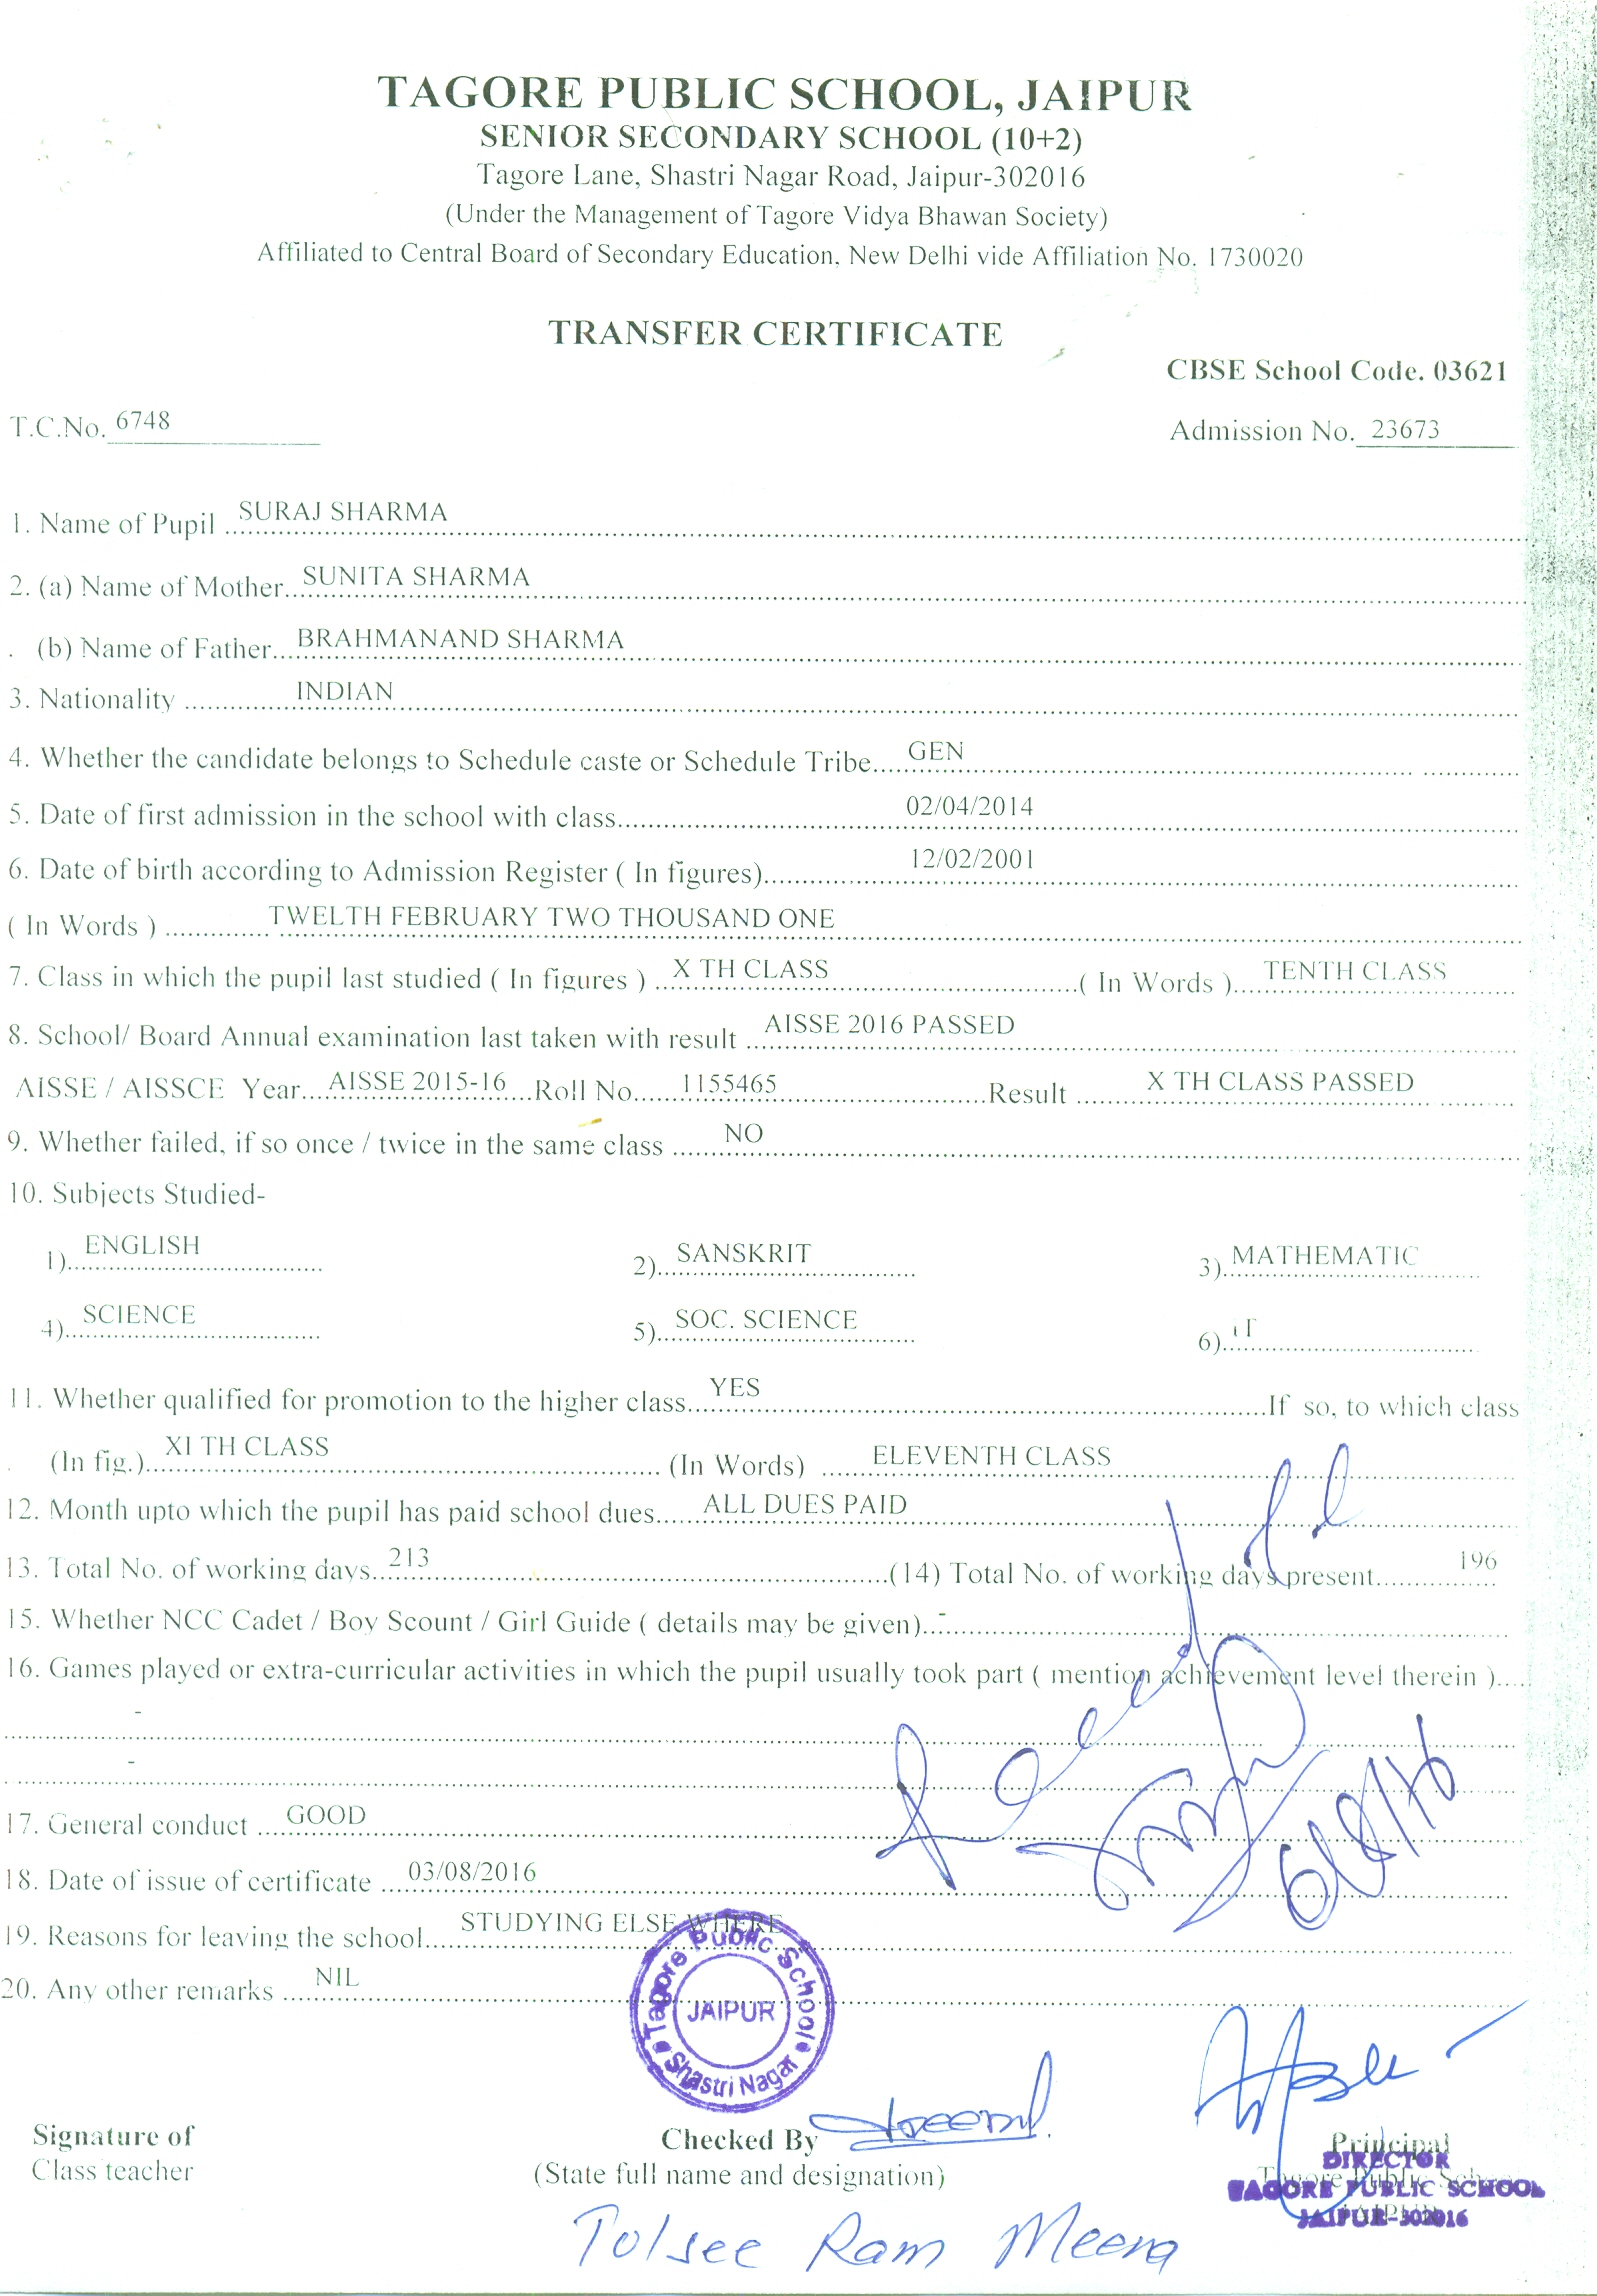 TAGORE PUBLIC SCHOOL, JAIPUR
SENIOR SECONDARY SCHOOL (10+2)
Tagore Lane, Shastri Nagar Road, Jaipur-302016
(Under the Management of Tagore Vidya Bhawan Society)
Affiliated to Central Board of Secondary Education, New Delhi vide Affiliation No. 1730020
TRANSFER CERTIFICATE
CBSE School Code. 03621
T.C.No. 6748 Admission No. 23673
1. Name of Pupil SURAJ SHARMA
2. (a) Name of Mother SUNITA SHARMA
(b) Name of Father BRAHMANAND SHARMA
3. Nationality INDIAN
4. Whether the candidate belongs to Schedule caste or Schedule Tribe GEN
5. Date of first admission in the school with class 02/04/2014
6. Date of birth according to Admission Register ( In figures) 12/02/2001
( In Words ) TWELTH FEBRUARY TWO THOUSAND ONE
7. Class in which the pupil last studied ( In figures ) X TH CLASS ( In Words ) TENTH CLASS
8. School/ Board Annual examination last taken with result AISSE 2016 PASSED
AISSE / AISSCE Year AISSE 2015-16 Roll No. 1155465 Result X TH CLASS PASSED
9. Whether failed, if so once / twice in the same class NO
10. Subjects Studied-
1) ENGLISH 2) SANSKRIT 3) MATHEMATIC
4) SCIENCE 5) SOC. SCIENCE 6) IT
11. Whether qualified for promotion to the higher class YES If so, to which class
(In fig.) XI TH CLASS (In Words) ELEVENTH CLASS
12. Month upto which the pupil has paid school dues ALL DUES PAID
13. Total No. of working days 213 (14) Total No. of working days present 196
15. Whether NCC Cadet / Boy Scount / Girl Guide ( details may be given) -
16. Games played or extra-curricular activities in which the pupil usually took part ( mention achievement level therein )
-
-
17. General conduct GOOD
18. Date of issue of certificate 03/08/2016
19. Reasons for leaving the school STUDYING ELSE WHERE
20. Any other remarks NIL
Tagore Public School
JAIPUR
Shastri Nagar
Signature of
Class teacher
Checked By
(State full name and designation)
Tolsee Ram Meena
Principal
Tagore Public School
JAIPUR
DIRECTOR
TAGORE PUBLIC SCHOOL
JAIPUR-302016